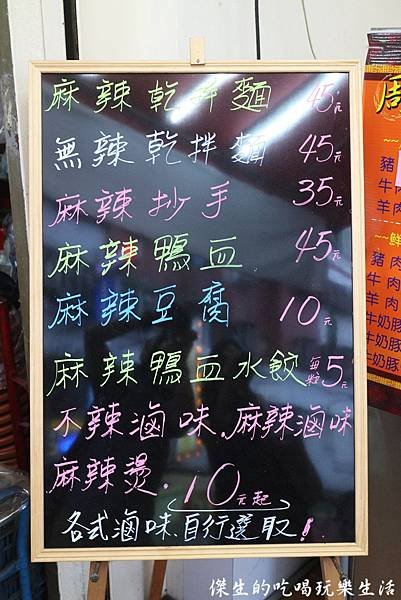 麻辣乾拌麵 45元
無辣乾拌麵 45元
麻辣抄手 35元
麻辣鴨血 45元
麻辣豆腐 10元
麻辣鴨血水餃 每粒5元
不辣滷味.麻辣滷味
麻辣燙.10元起
各式滷味.自行選取!
周
豬
牛肉
羊肉
~~鮮
豬肉
牛肉
羊肉
牛奶豚
牛奶豚
傑生的吃喝玩樂生活